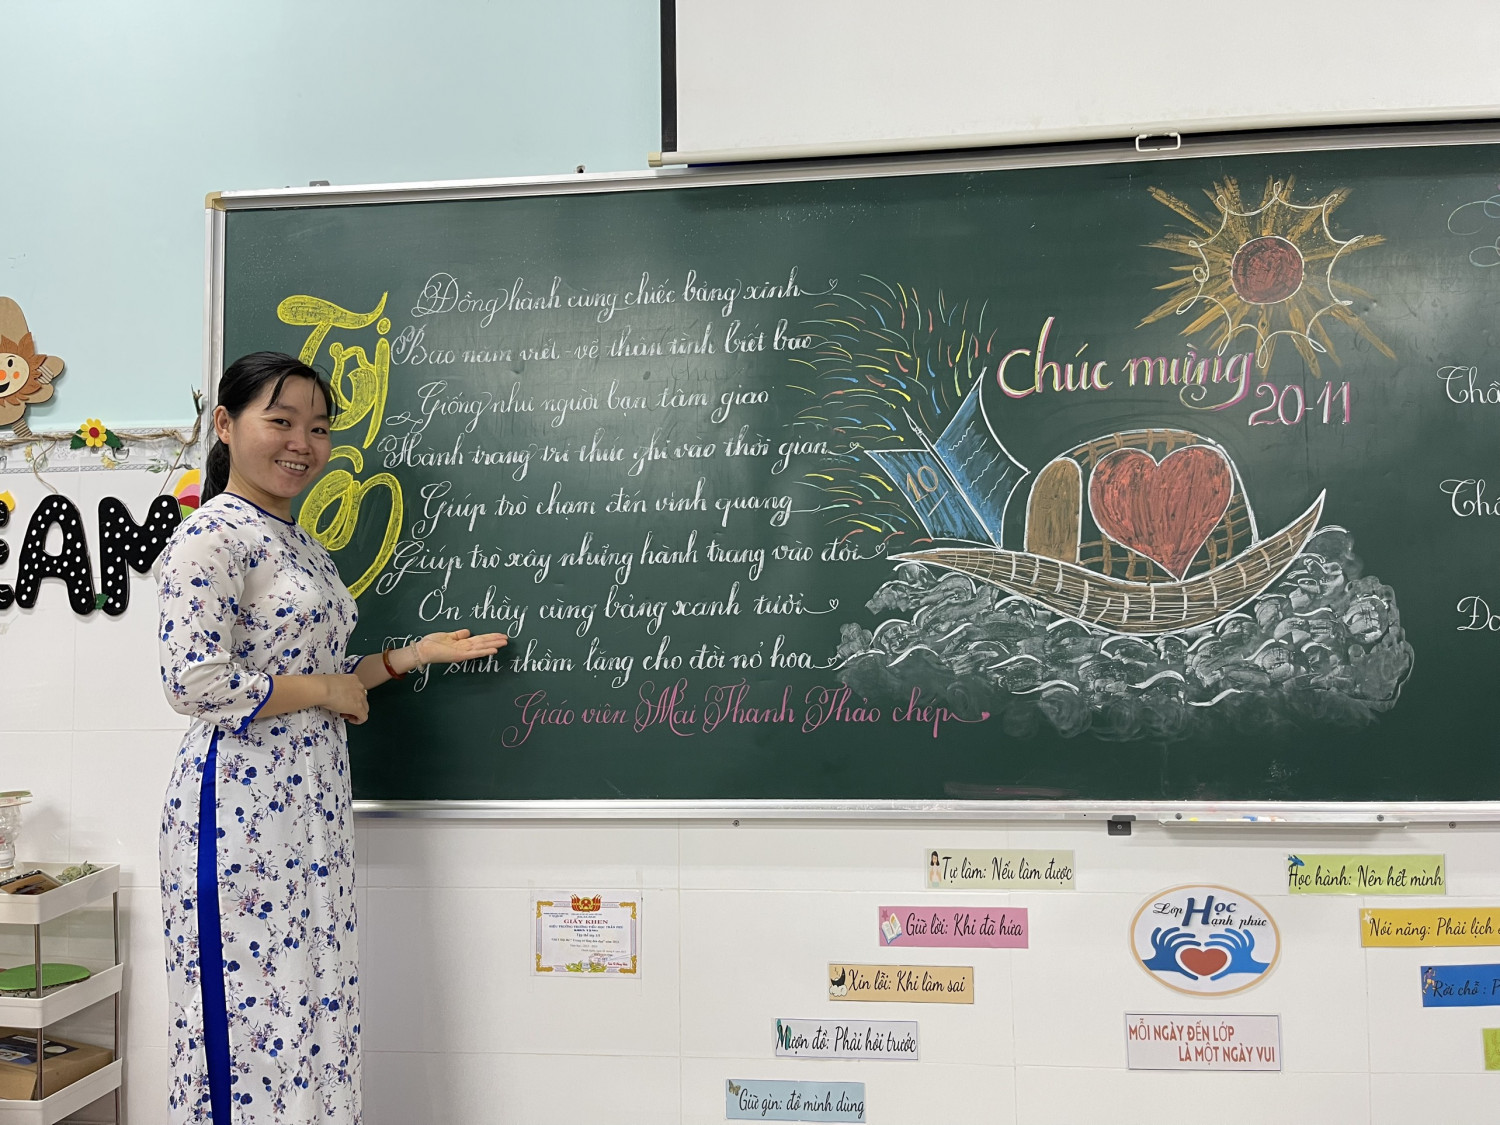 Tri
Đồng hành cùng chiếc bảng xinh
Bao năm viết - vẽ thân tình biết bao
Giống như người bạn tâm giao
Hành trang tri thức ghi vào thời gian
Giúp trò chạm đến vinh quang
Giúp trò xây những hành trang vào đời
Ơn thầy cùng bảng xanh tươi
Hy sinh thầm lặng cho đời nở hoa
Giáo viên Mai Thanh Thảo chép
10
Chúc mừng
20-11
EAM
GIẤY KHEN
Tự làm: Nếu làm được
Giữ lời: Khi đã hứa
Xin lỗi: Khi làm sai
Mượn đồ: Phải hỏi trước
Giữ gìn: đồ mình dùng
Lớp Học Hạnh phúc
MỖI NGÀY ĐẾN LỚP
LÀ MỘT NGÀY VUI
Học hành: Nên hết mình
Nói năng: Phải lịch
Rời chỗ :